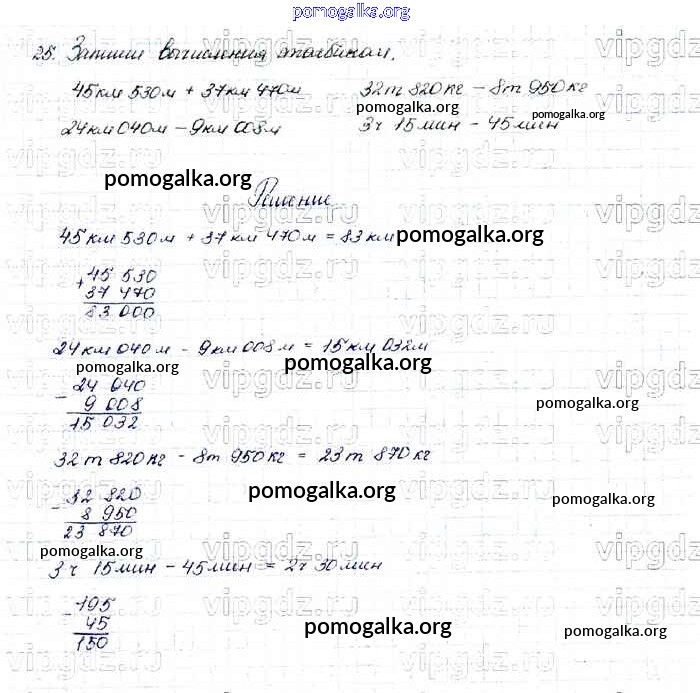 pomogalka.org
25. Запиши вычисления столбиком.
45км 530м + 37км 470м 32т 820кг - 8т 950кг
pomogalka.org pomogalka.org
24км 040м - 9км 008м 3ч 15мин - 45мин
pomogalka.org
Решение
45км 530м + 37км 470м = 83км pomogalka.org
+ 45 530
37 470
83 000
24км 040м - 9км 008м = 15км 032м
pomogalka.org pomogalka.org
- 24 040
9 008 pomogalka.org
15 032
32т 820кг - 8т 950кг = 23т 870кг
pomogalka.org pomogalka.org
- 32 820
8 950
23 870
pomogalka.org
3ч 15мин - 45мин = 2ч 30мин
- 195
45
150
pomogalka.org pomogalka.org
vipgdz.ru